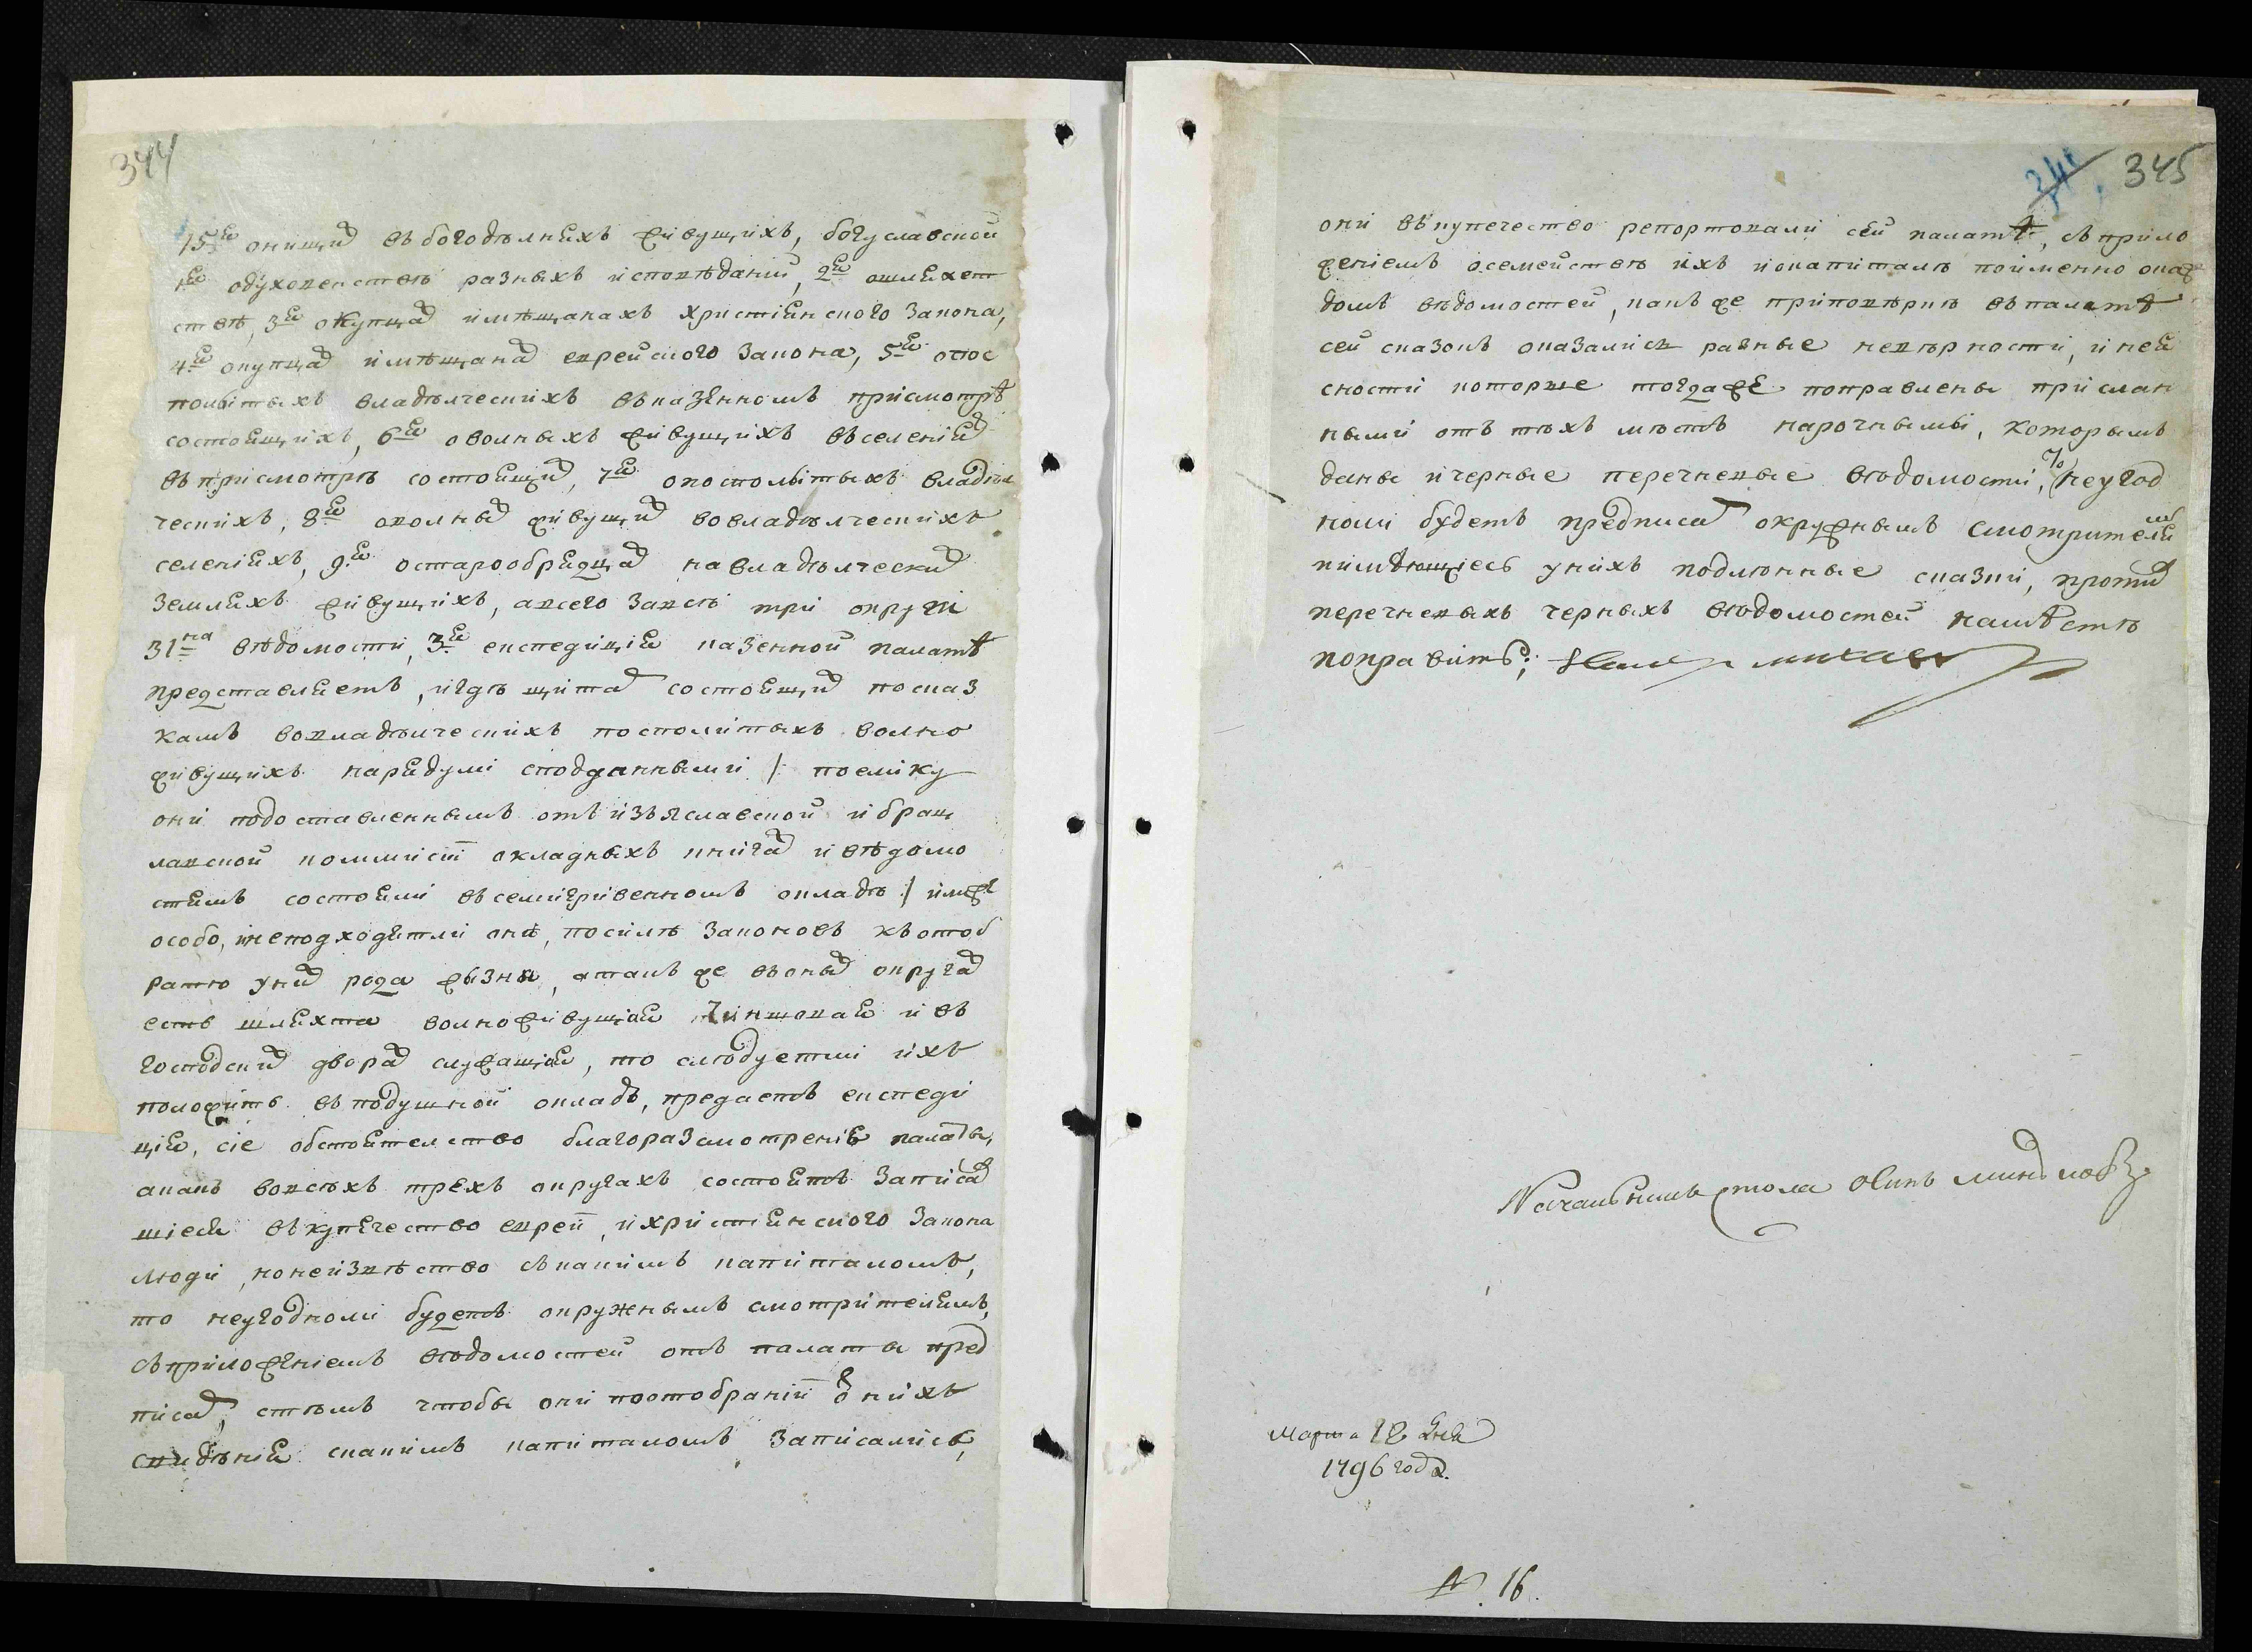 344
15я онищих въ богодѣлняхъ живущихъ, богуславской
1я одуховенствѣ разныхъ исповѣданій, 2я ошляхет
ствѣ, 3я окупцах имѣщанахъ христіянского закона,
4я окупцах имѣщанах еврейского закона, 5я опос
политыхъ владѣлческихъ въказенномъ присмотрѣ
состоящихъ, 6я оволныхъ живущихъ вселеніях
въприсмотрѣ состоящих, 7я опосполитыхъ владѣл
ческихъ, 8я оволных живущих вовладѣлческихъ
селеніяхъ, 9я остарообрядцах навладѣлческих
земляхъ живущихъ, авсего завсѣ три округи
31на вѣдомости, 3я експедиція казенной палатѣ
представляетъ, игдѣ щитат состоящих посказ
камъ вовладѣлческихъ посполитыхъ волно
живущихъ нарядули сподданными /: поелику
они подоставленнымъ отъ изъяславской и брац
лавской коммисій окладныхъ книгах и вѣдомо
стямъ состояли въсемигривенномъ окладѣ :/ илиже
особо, инеподходятли онѣ, посилѣ законовъ къотоб
ранію уних рода жизни, атакъ же въоных округах
есть шляхта волноживущая чиншовая и въ
господских дворах служащая, то слѣдуетли ихъ
положить въподушной окладъ, предаетъ експеди
ція, сіе обстоятелство благоразсмотренію палаты,
акакъ вовсѣхъ трехъ округахъ состоятъ записав
шіеся въкупечество евреи, ихристіянского закона
люди, нонеизвѣство съкакимъ капиталомъ,
то неугодноли будетъ окружнымъ смотрителямъ,
съприложеніемъ вѣдомостей отъ палаты пред
писат, стѣмъ чтобы они поотобраніи о нихъ
свидѣнія скакимъ капиталомъ записались,
345
они въкупечество репортовали сей палатѣ, съприло
женіемъ осемействѣ ихъ иокапиталѣ поименно оказ
домъ вѣдомостей, какъ же приповѣркѣ въпалатѣ
сей сказокъ оказались разные невѣрности, инея
сности которые тогдаже поправлены прислан
ными отъ тѣхъ мѣстъ нарочными, которымъ
даны ичерные перечневые вѣдомости, неугод
ноли будетъ предписат окружнымъ смотрителям
имѣющіесь унихъ подлѣнные сказки, против
перечневыхъ черныхъ вѣдомостей намѣстѣ
поправить;
Начальникъ стола
Марта 12 дня
1796 года.
№. 16.